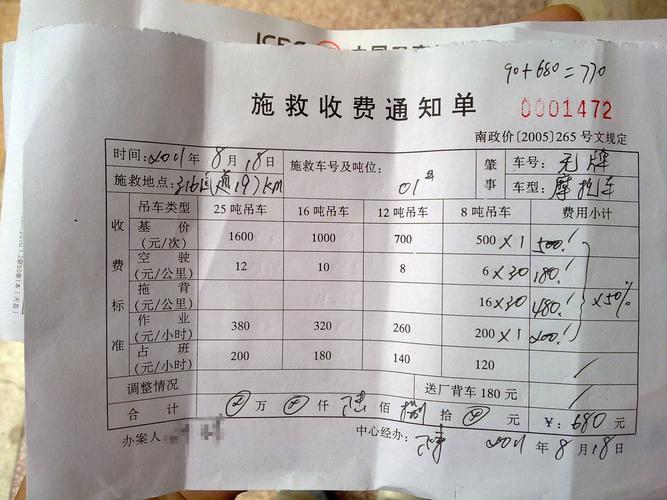 90+680=770
施救收费通知单
0001472
南政价[2005]265号文规定
时间:2011年8月18日 施救车号及吨位: 01 肇事 车号: 无牌
施救地点:316国道197km 车型: 摩托车
收费标准 吊车类型 25吨吊车 16吨吊车 12吨吊车 8吨吊车 费用小计
基价(元/次) 1600 1000 700 500 ×1 500
空驶(元/公里) 12 10 8 6 ×30 180
拖背(元/公里) 16 ×30 480
×50%
作业(元/小时) 380 320 260 200 ×1 200
占班(元/小时) 200 180 140 120 /
调整情况 送厂背车180元 /
合计 万 仟 陆 佰 捌 拾 元 ¥: 680 元
办案人: 中心经办: 2011年8月18日